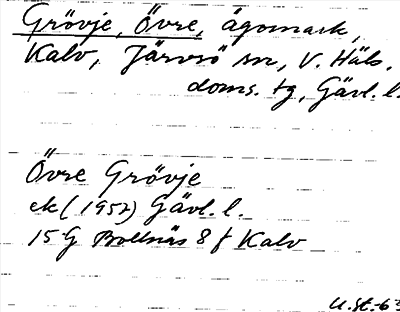 Grövje, Övre, ägomark,
Kalv, Järvsö sn, V. Häls.
doms. tg, Gävl. l.
Övre Grövje
ek (1957) Gävl. l.
15 G Bollnäs 8 f Kalv
U. St. -63